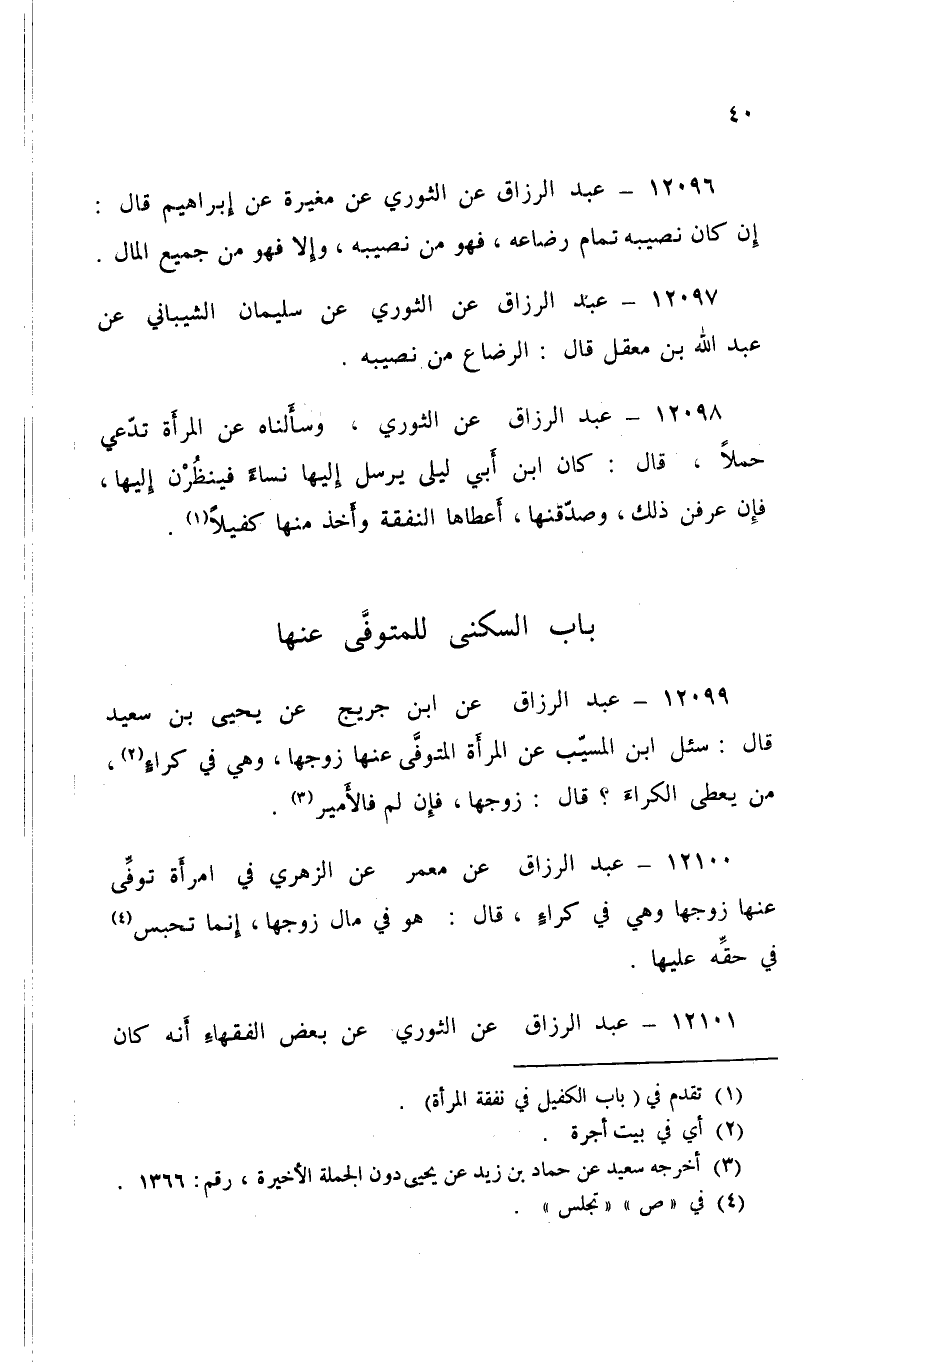 ٤٠
١٢٠٩٦ – عبد الرزاق عن الثوري عن مغيرة عن إبراهيم قال :
إن كان نصيبه تمام رضاعه ، فهو من نصيبه ، وإلا فهو من جميع المال .
١٢٠٩٧ – عبد الرزاق عن الثوري عن سليمان الشيباني عن
عبد الله بن معقل قال : الرضاع من نصيبه .
١٢٠٩٨ – عبد الرزاق عن الثوري ، وسأَلناه عن المرأَة تدّعي
حملاً ، قال : كان ابن أَبي ليلى يرسل إليها نساءً فينظُرْن إليها ،
فإن عرفن ذلك ، وصدّقنها ، أَعطاها النفقة وأَخذ منها كفيلاً(١) .
باب السكنى للمتوفَّى عنها
١٢٠٩٩ – عبد الرزاق عن ابن جريج عن يحيى بن سعيد
قال : سئل ابن المسيّب عن المرأَة المتوفَّى عنها زوجها ، وهي في كراءٍ(٢) ،
من يعطى الكراءَ ؟ قال : زوجها ، فإن لم فالأَمير(٣) .
١٢١٠٠ – عبد الرزاق عن معمر عن الزهري في امرأَة توفِّى
عنها زوجها وهي في كراءٍ ، قال : هو في مال زوجها ، إنما تحبس(٤)
في حقِّه عليها .
١٢١٠١ – عبد الرزاق عن الثوري عن بعض الفقهاءِ أَنه كان
(١) تقدم في ( باب الكفيل في نفقة المرأة) .
(٢) أي في بيت أجرة .
(٣) أخرجه سعيد عن حماد بن زيد عن يحيى دون الجملة الأخيرة ، رقم : ١٣٦٦ .
(٤) في « ص » « تجلس » .